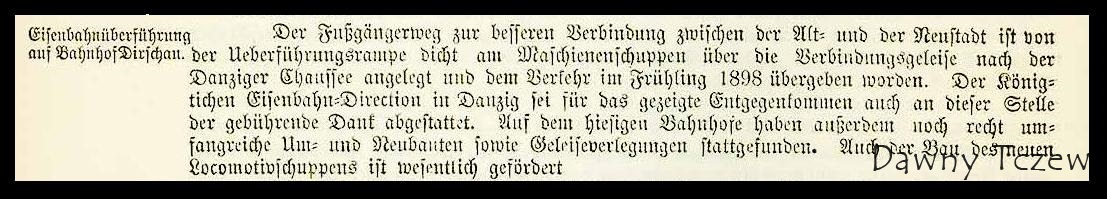 Eisenbahnüberführung
auf Bahnhof Dirschau.
Der Fußgängerweg zur besseren Verbindung zwischen der Alt- und der Neustadt ist von
der Ueberführungsrampe dicht am Maschienenschuppen über die Verbindungsgeleise nach der
Danziger Chaussee angelegt und dem Verkehr im Frühling 1898 übergeben worden. Der König-
lichen Eisenbahn-Direction in Danzig sei für das gezeigte Entgegenkommen auch an dieser Stelle
der gebührende Dank abgestattet. Auf dem hiesigen Bahnhofe haben außerdem noch recht um-
fangreiche Um- und Neubauten sowie Geleiseverlegungen stattgefunden. Auch der Bau des neuen
Locomotivschuppens ist wesentlich gefördert
Dawny Tczew